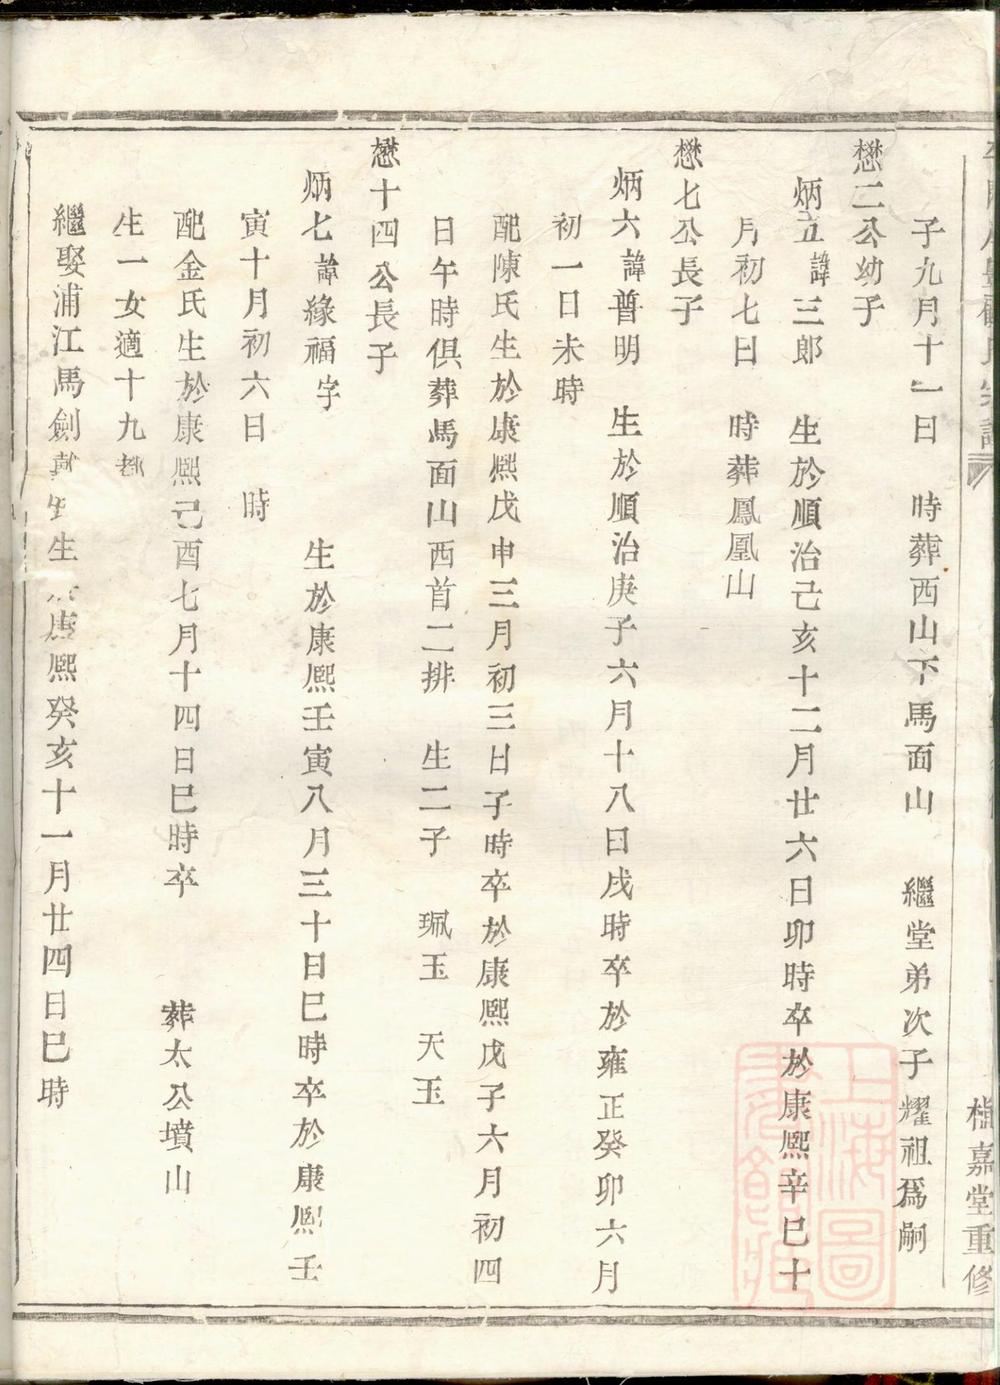 子九月十一日　時葬西山下馬面山　繼堂弟次子耀祖爲嗣
懋二公幼子
炳五諱三郎　生於順治己亥十二月廿六日卯時卒於康熙辛巳十
月初七日　時葬鳳凰山
懋七公長子
炳六諱普明　生於順治庚子六月十八日戌時卒於雍正癸卯六月
初一日未時
配陳氏生於康熙戊申三月初三日子時卒於康熙戊子六月初四
日午時俱葬馬面山西首二排　生二子　珮玉　天玉
懋十四公長子
炳七諱緣福字　生於康熙壬寅八月三十日巳時卒於康熙壬
寅十月初六日　時
配金氏生於康熙己酉七月十四日巳時卒　葬太公墳山
生一女適十九都
繼娶浦江馬劍生康熙癸亥十一月廿四日巳時
嘉堂重修
上海圖書館藏